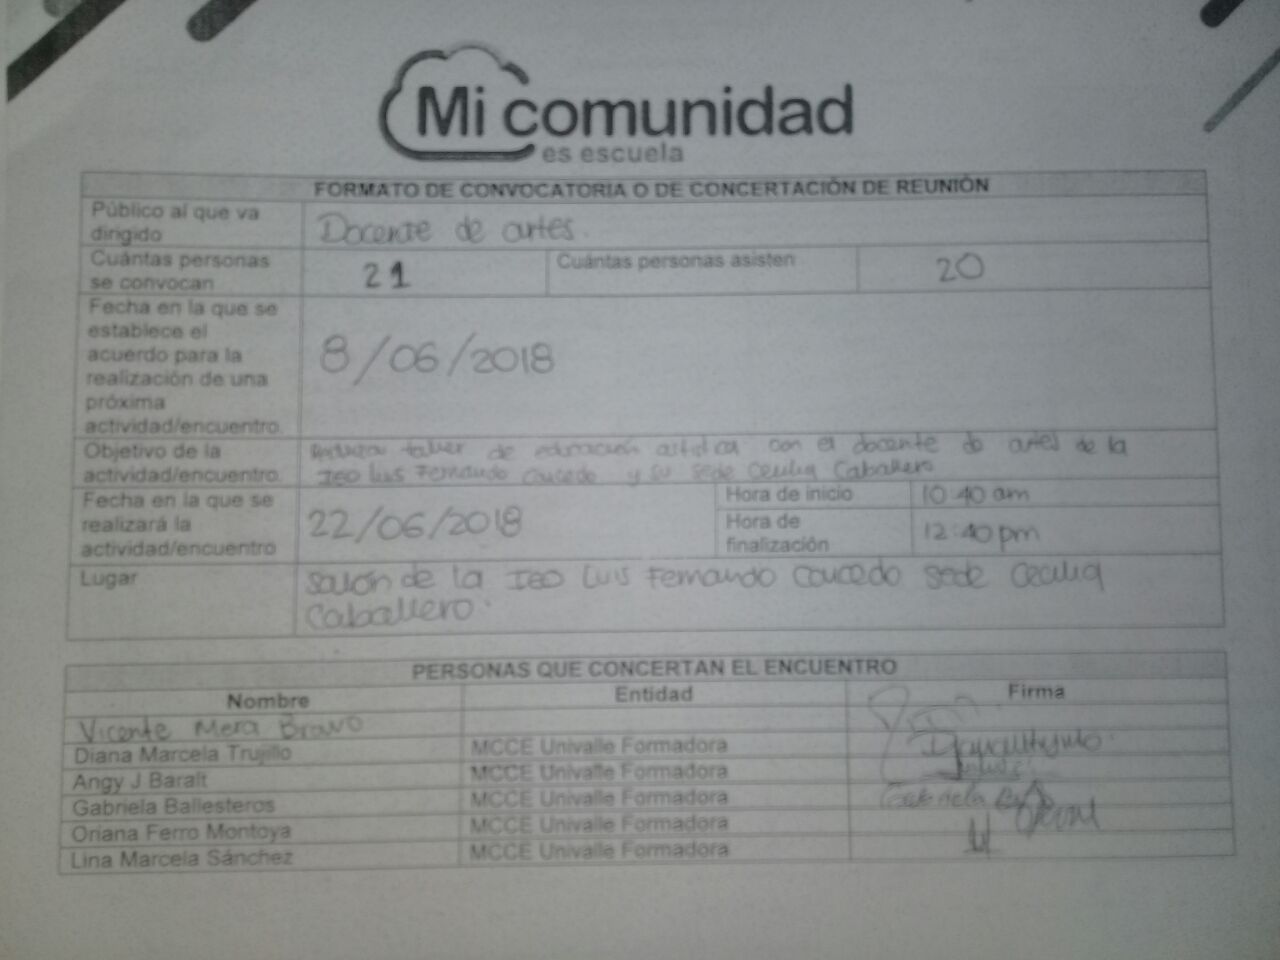 Mi comunidad
es escuela
FORMATO DE CONVOCATORIA O DE CONCERTACIÓN DE REUNIÓN
Público al que va
dirigido
Docente de artes.
Cuántas personas
se convocan
21
Cuántas personas asisten
20
Fecha en la que se
establece el
acuerdo para la
realización de una
próxima
actividad/encuentro.
8/06/2018
Objetivo de la
actividad/encuentro.
taller de educación artística con el docente de artes de la
IEO Luis Fernando Caucedo y su sede Cecilia Caballero
Fecha en la que se
realizará la
actividad/encuentro
22/06/2018
Hora de inicio
10:40 am
Hora de
finalización
12:40 pm
Lugar
Salón de la IEO Luis Fernando Caucedo sede Cecilia
Caballero.
PERSONAS QUE CONCERTAN EL ENCUENTRO
Nombre Entidad Firma
Vicente Mera Bravo
Diana Marcela Trujillo MCCE Univalle Formadora
Angy J Baralt MCCE Univalle Formadora
Gabriela Ballesteros MCCE Univalle Formadora Gabriela
Oriana Ferro Montoya MCCE Univalle Formadora
Lina Marcela Sánchez MCCE Univalle Formadora